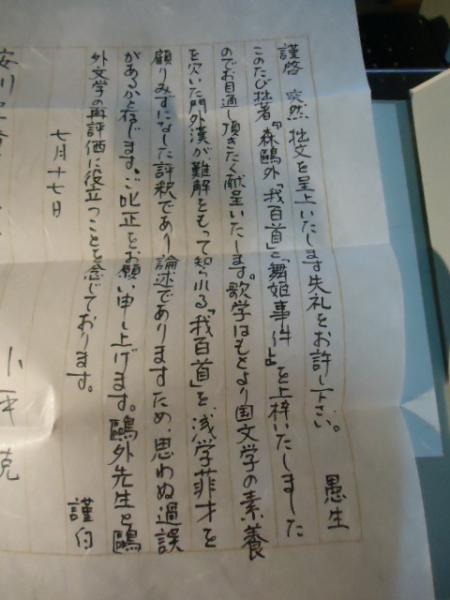 謹啓 突然 拙文を呈上いたします失礼をお許し下さい。 愚生
このたび拙著『森鷗外「我百首」と「舞姫事件」』を上梓いたしました
のでお目通し頂きたく献呈いたします。歌学はもとより国文学の素養
を欠いた門外漢が、難解をもって知られる「我百首」を、浅学菲才を
顧りみずになした評釈であり論述でありますため、思わぬ過誤
があるかと存じます。ご叱正をお願い申し上げます。鷗外先生と鷗
外文学の再評価に役立つことを念じております。 謹白
七月十七日
小平 克
安川